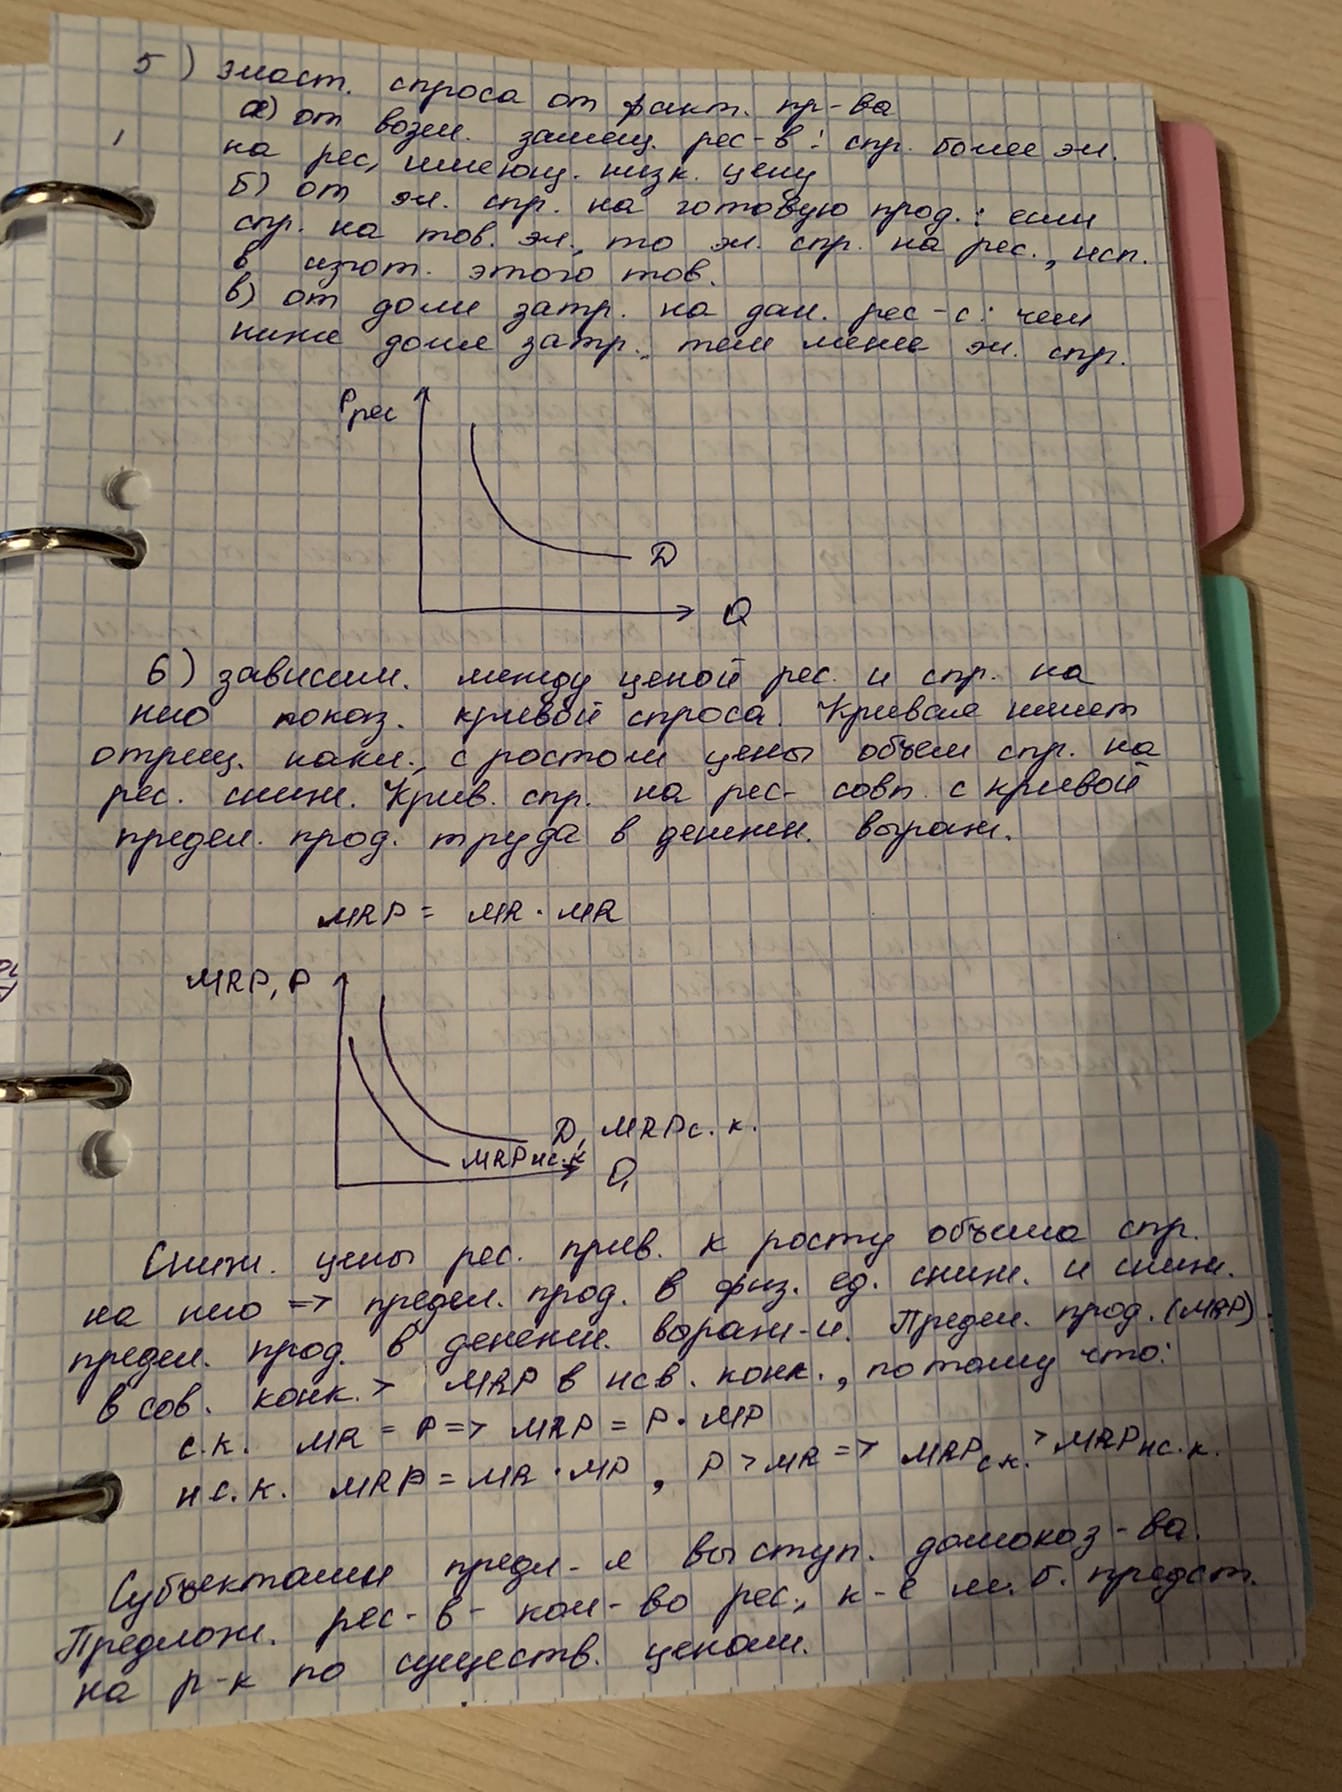 5) эласт. спроса от факт. пр-ва
а) от возм. замещ. рес-в: спр. более эл.
на рес, имеющ. низк. цену
б) от эл. спр. на готовую прод.: если
спр. на тов. эл., то эл. спр. на рес., исп.
в изгот. этого тов.
в) от доли затр. на дан. рес-с: чем
ниже доля затр., тем менее эл. спр.
Pрес
D
Q
6) зависим. между ценой рес. и спр. на
него показ. кривой спроса. Кривая имеет
отриц. накл., с ростом цены объем спр. на
рес. сниж. Крив. спр. на рес- совп. с кривой
предел. прод. труда в денежн. выраж.
MRP = MR · MR
MRP, P
D, MRPс.к.
MRPнс.к
Q
Сниж. цены рес. прив. к росту объема спр.
на него => предел. прод. в физ. ед. сниж. и сниж.
предел. прод. в денежн. выраж-и. Предел. прод. (MRP)
в сов. конк. > MRP в нсв. конк., потому что:
с.к. MR = P => MRP = P · MP
нс.к. MRP = MR · MP, P > MR => MRPс.к. > MRPнс.к.
Субъектами предл-я выступ. домохоз-ва.
Предлож. рес-в - кол-во рес., к-е м.б. предст.
на р-к по существ. ценам.